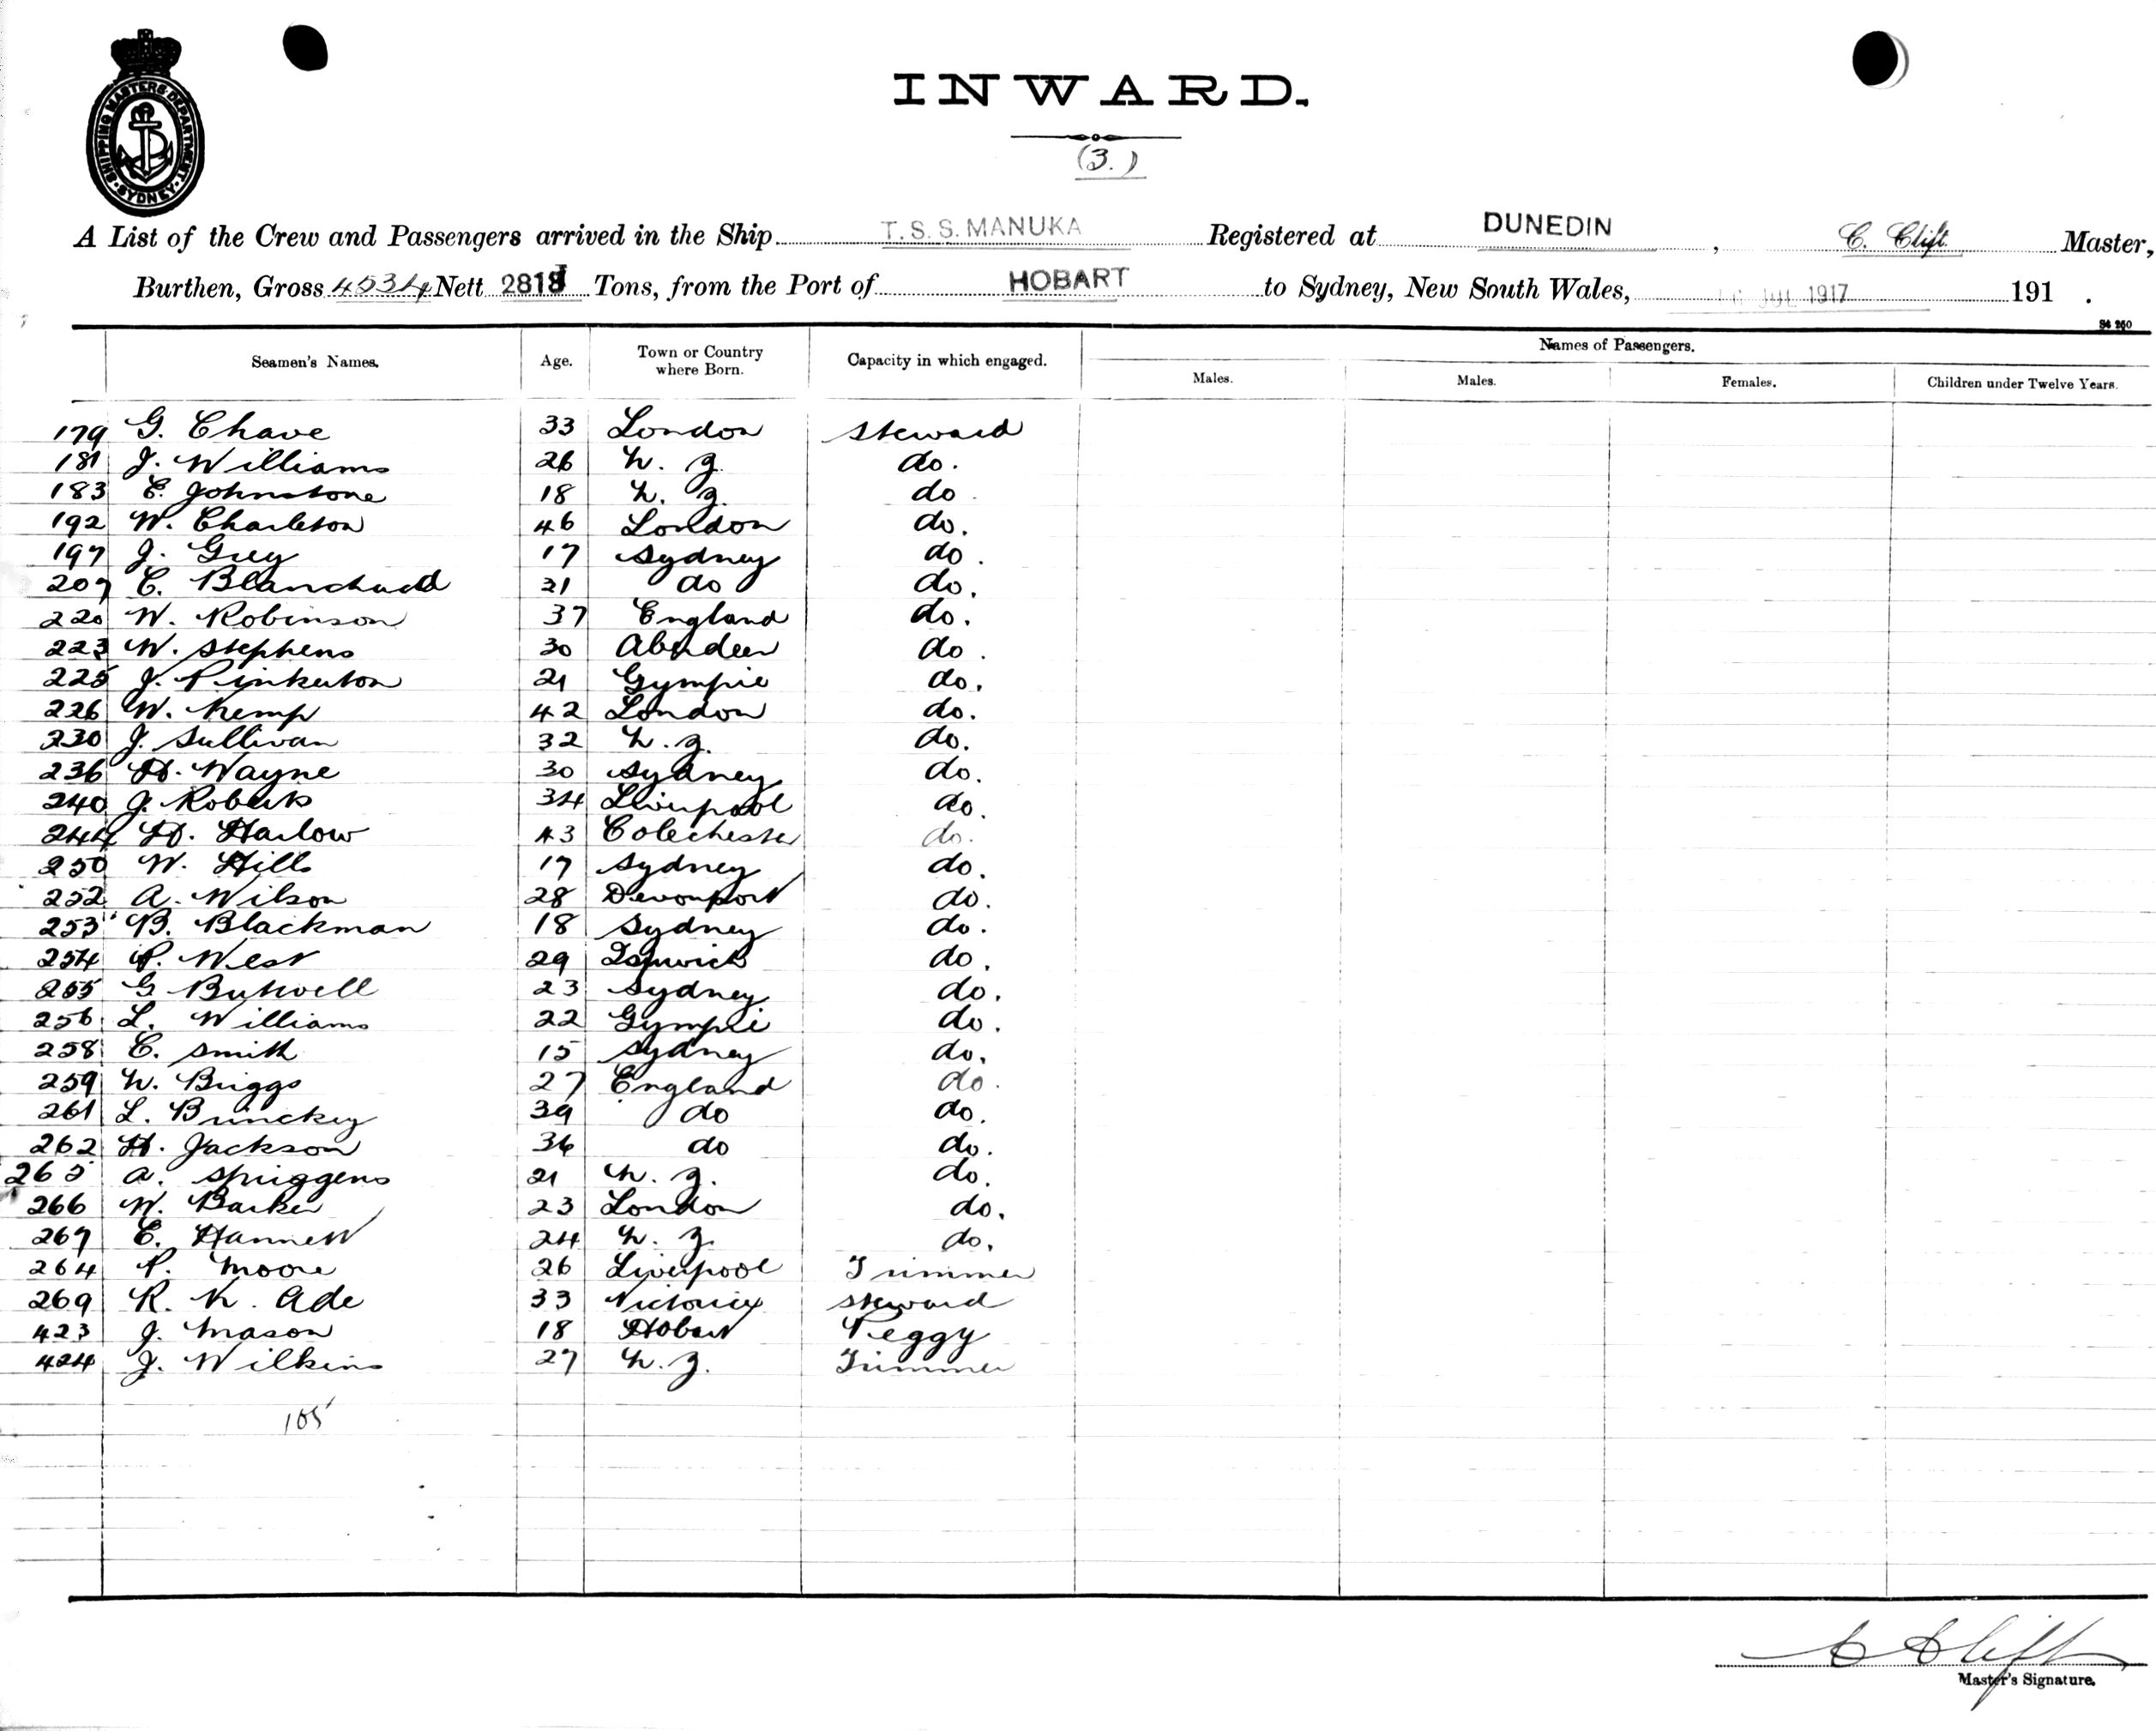 SHIPPING MASTERS DEPARTMENT · SYDNEY ·
INWARD.
(3.)
A List of the Crew and Passengers arrived in the Ship T.S.S. MANUKA Registered at DUNEDIN, C. Clift. Master,
Burthen, Gross 4534 Nett 281 Tons, from the Port of HOBART to Sydney, New South Wales, JUL 1917 191 .
S4 260
Seamen's Names. Age. Town or Country where Born. Capacity in which engaged. Names of Passengers.
Males. Males. Females. Children under Twelve Years.
179 G. Chave 33 London Steward
181 J. Williams 26 N. Z. do.
183 E. Johnstone 18 N. Z. do
192 W. Charleton 46 London do.
197 J. Grey 17 Sydney do.
207 C. 31 do do.
220 W. Robinson 37 England do.
223 W. Stephens 30 Aberdeen do.
225 J. Pinkerton 21 Gympie do.
226 W. Kemp 42 London do.
230 J. Sullivan 32 N. Z. do.
236 H. Wayne 30 Sydney do.
240 J. Roberts 34 Liverpool do.
244 H. Harlow 43 Colechester do.
250 W. Hill 17 Sydney do.
252 A. Wilson 28 Devonport do.
253 B. Blackman 18 Sydney do.
254 P. West 29 do.
255 G Butwell 23 Sydney do.
256 L. Williams 22 Gympie do.
258 C. Smith 15 Sydney do.
259 N. Briggs 27 England do.
261 L. 39 do do.
262 H. Jackson 36 do do.
265 A. Spriggens 21 N. Z. do.
266 W. Barker 23 London do.
267 E. Hannett 24 N. Z. do.
264 P. Moore 26 Liverpool Trimmer
269 R. K. Ade 33 Victoria Steward
423 J. Mason 18 Hobart Peggy
424 J. Wilkins 27 N. Z. Trimmer
105
C Clift
Master's Signature.